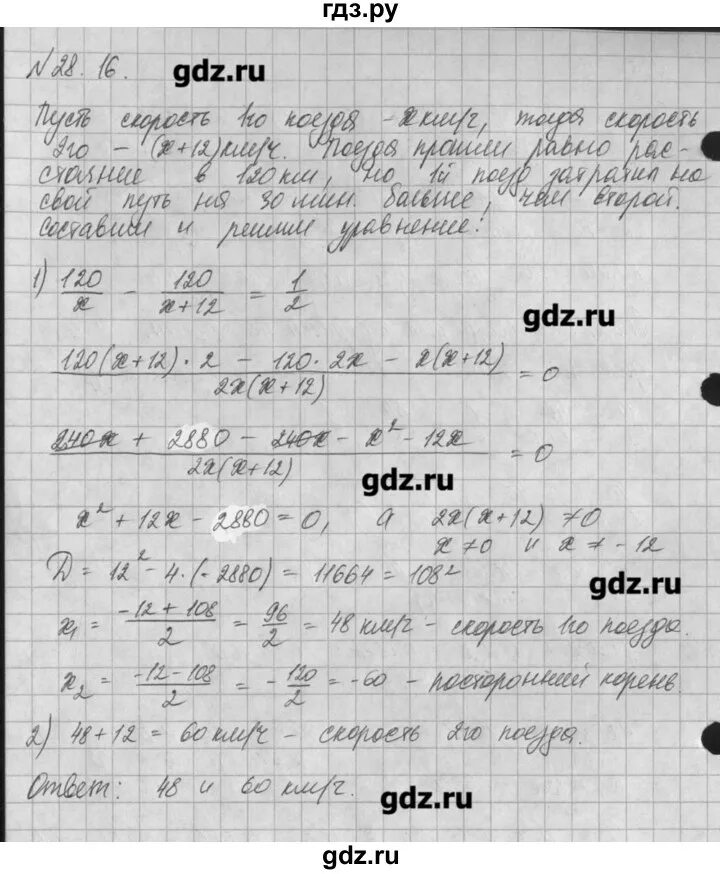 гдз.ру
№28.16.
gdz.ru
Пусть скорость 1го поезда - x км/ч, тогда скорость
2го – (x+12) км/ч. Поезда прошли равно рас-
стояние в 120 км, но 1й поезд затратил на
свой путь на 30 мин. больше, чем второй.
Составим и решим уравнение:
1) 120/x - 120/(x+12) = 1/2
gdz.ru
(120(x+12)·2 - 120·2x - x(x+12))/(2x(x+12)) = 0
(240x + 2880 - 240x - x² - 12x)/(2x(x+12)) = 0
gdz.ru
x² + 12x - 2880 = 0, а 2x(x+12) ≠ 0
x ≠ 0 и x ≠ -12
Д = 12² - 4·(-2880) = 11664 = 108²
gdz.ru
x₁ = (-12 + 108)/2 = 96/2 = 48 км/ч - скорость 1го поезда.
x₂ = (-12 - 108)/2 = -120/2 = -60 - посторонний корень.
2) 48 + 12 = 60 км/ч - скорость 2го поезда.
Ответ: 48 и 60 км/ч.
gdz.ru
gdz.ru